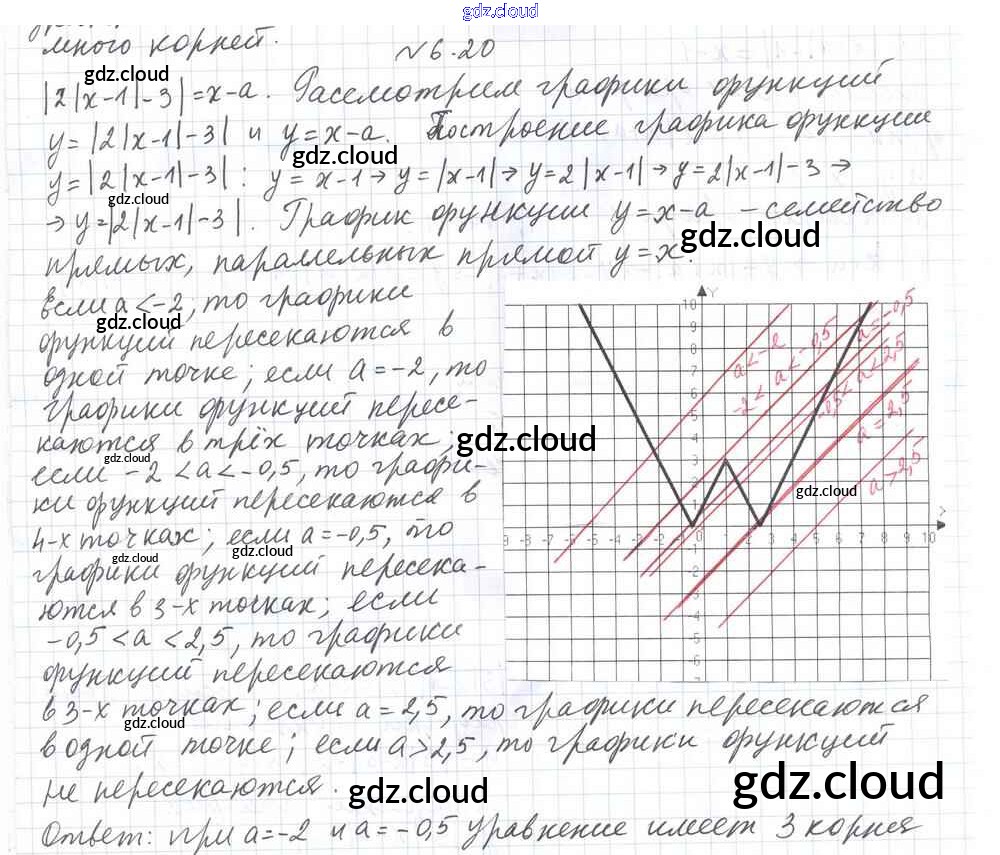 gdz.cloud
много корней.
№6.20
gdz.cloud
|2|x-1|-3|=x-a. Рассмотрим графики функций
y=|2|x-1|-3| и y=x-a. Построение графика функции
gdz.cloud
y=|2|x-1|-3|: y=x-1→y=|x-1|→y=2|x-1|→y=2|x-1|-3→
gdz.cloud
→y=|2|x-1|-3|. График функции y=x-a – семейство
gdz.cloud
прямых, параллельных прямой y=x.
если a<-2, то графики
gdz.cloud
функций пересекаются в
одной точке; если a=-2, то
графики функций пересе-
каются в трёх точках;
gdz.cloud
gdz.cloud
если -2<a<-0,5, то графи-
ки функций пересекаются в
4-х точках; если a=-0,5, то
gdz.cloud
gdz.cloud
графики функций пересека-
ются в 3-х точках; если
-0,5<a<2,5, то графики
функций пересекаются
в 3-х точках; если a=2,5, то графики пересекаются
gdz.cloud
в одной точке; если a>2,5, то графики функций
не пересекаются.
gdz.cloud
gdz.cloud
Ответ: при a=-2 и a=-0,5 уравнение имеет 3 корня
Y
10
9
8
7
6
5
4
3
a<-2
-2<a<-0,5
a=-0,5
-0,5<a<2,5
a=2,5
a>2,5
gdz.cloud
-8 -7 -6 -5 -4 -3 -2 1 2 3 4 5 6 7 8 9 10